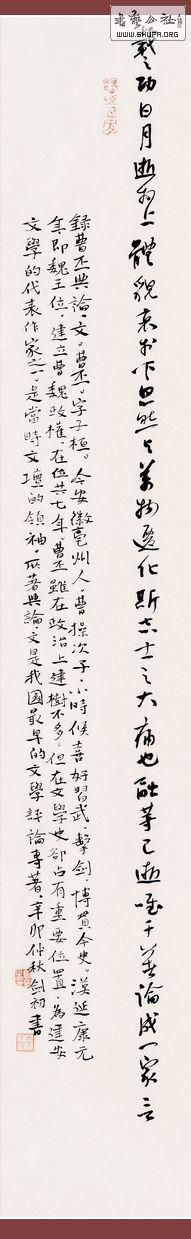 書藝公社
WWW.SHUFA.ORG
載之功日月逝於上體貌衰於下忽然與萬物遷化斯志士之大痛也融等已逝唯幹著論成一家言
錄曹丕典論·文。曹丕。字子桓。今安徽亳州人。曹操次子。小時候喜好習武·擊劍·博貫今史。漢延康元
年即魏王位，建立曹魏政權。在位共七年。曹丕雖在政治上建樹不多。但在文學史卻占有重要位置。為建安
文學的代表作家之一。是當時文壇的領袖。所著典論·文是我國最早的文學評論專著。辛卯仲秋劍初書